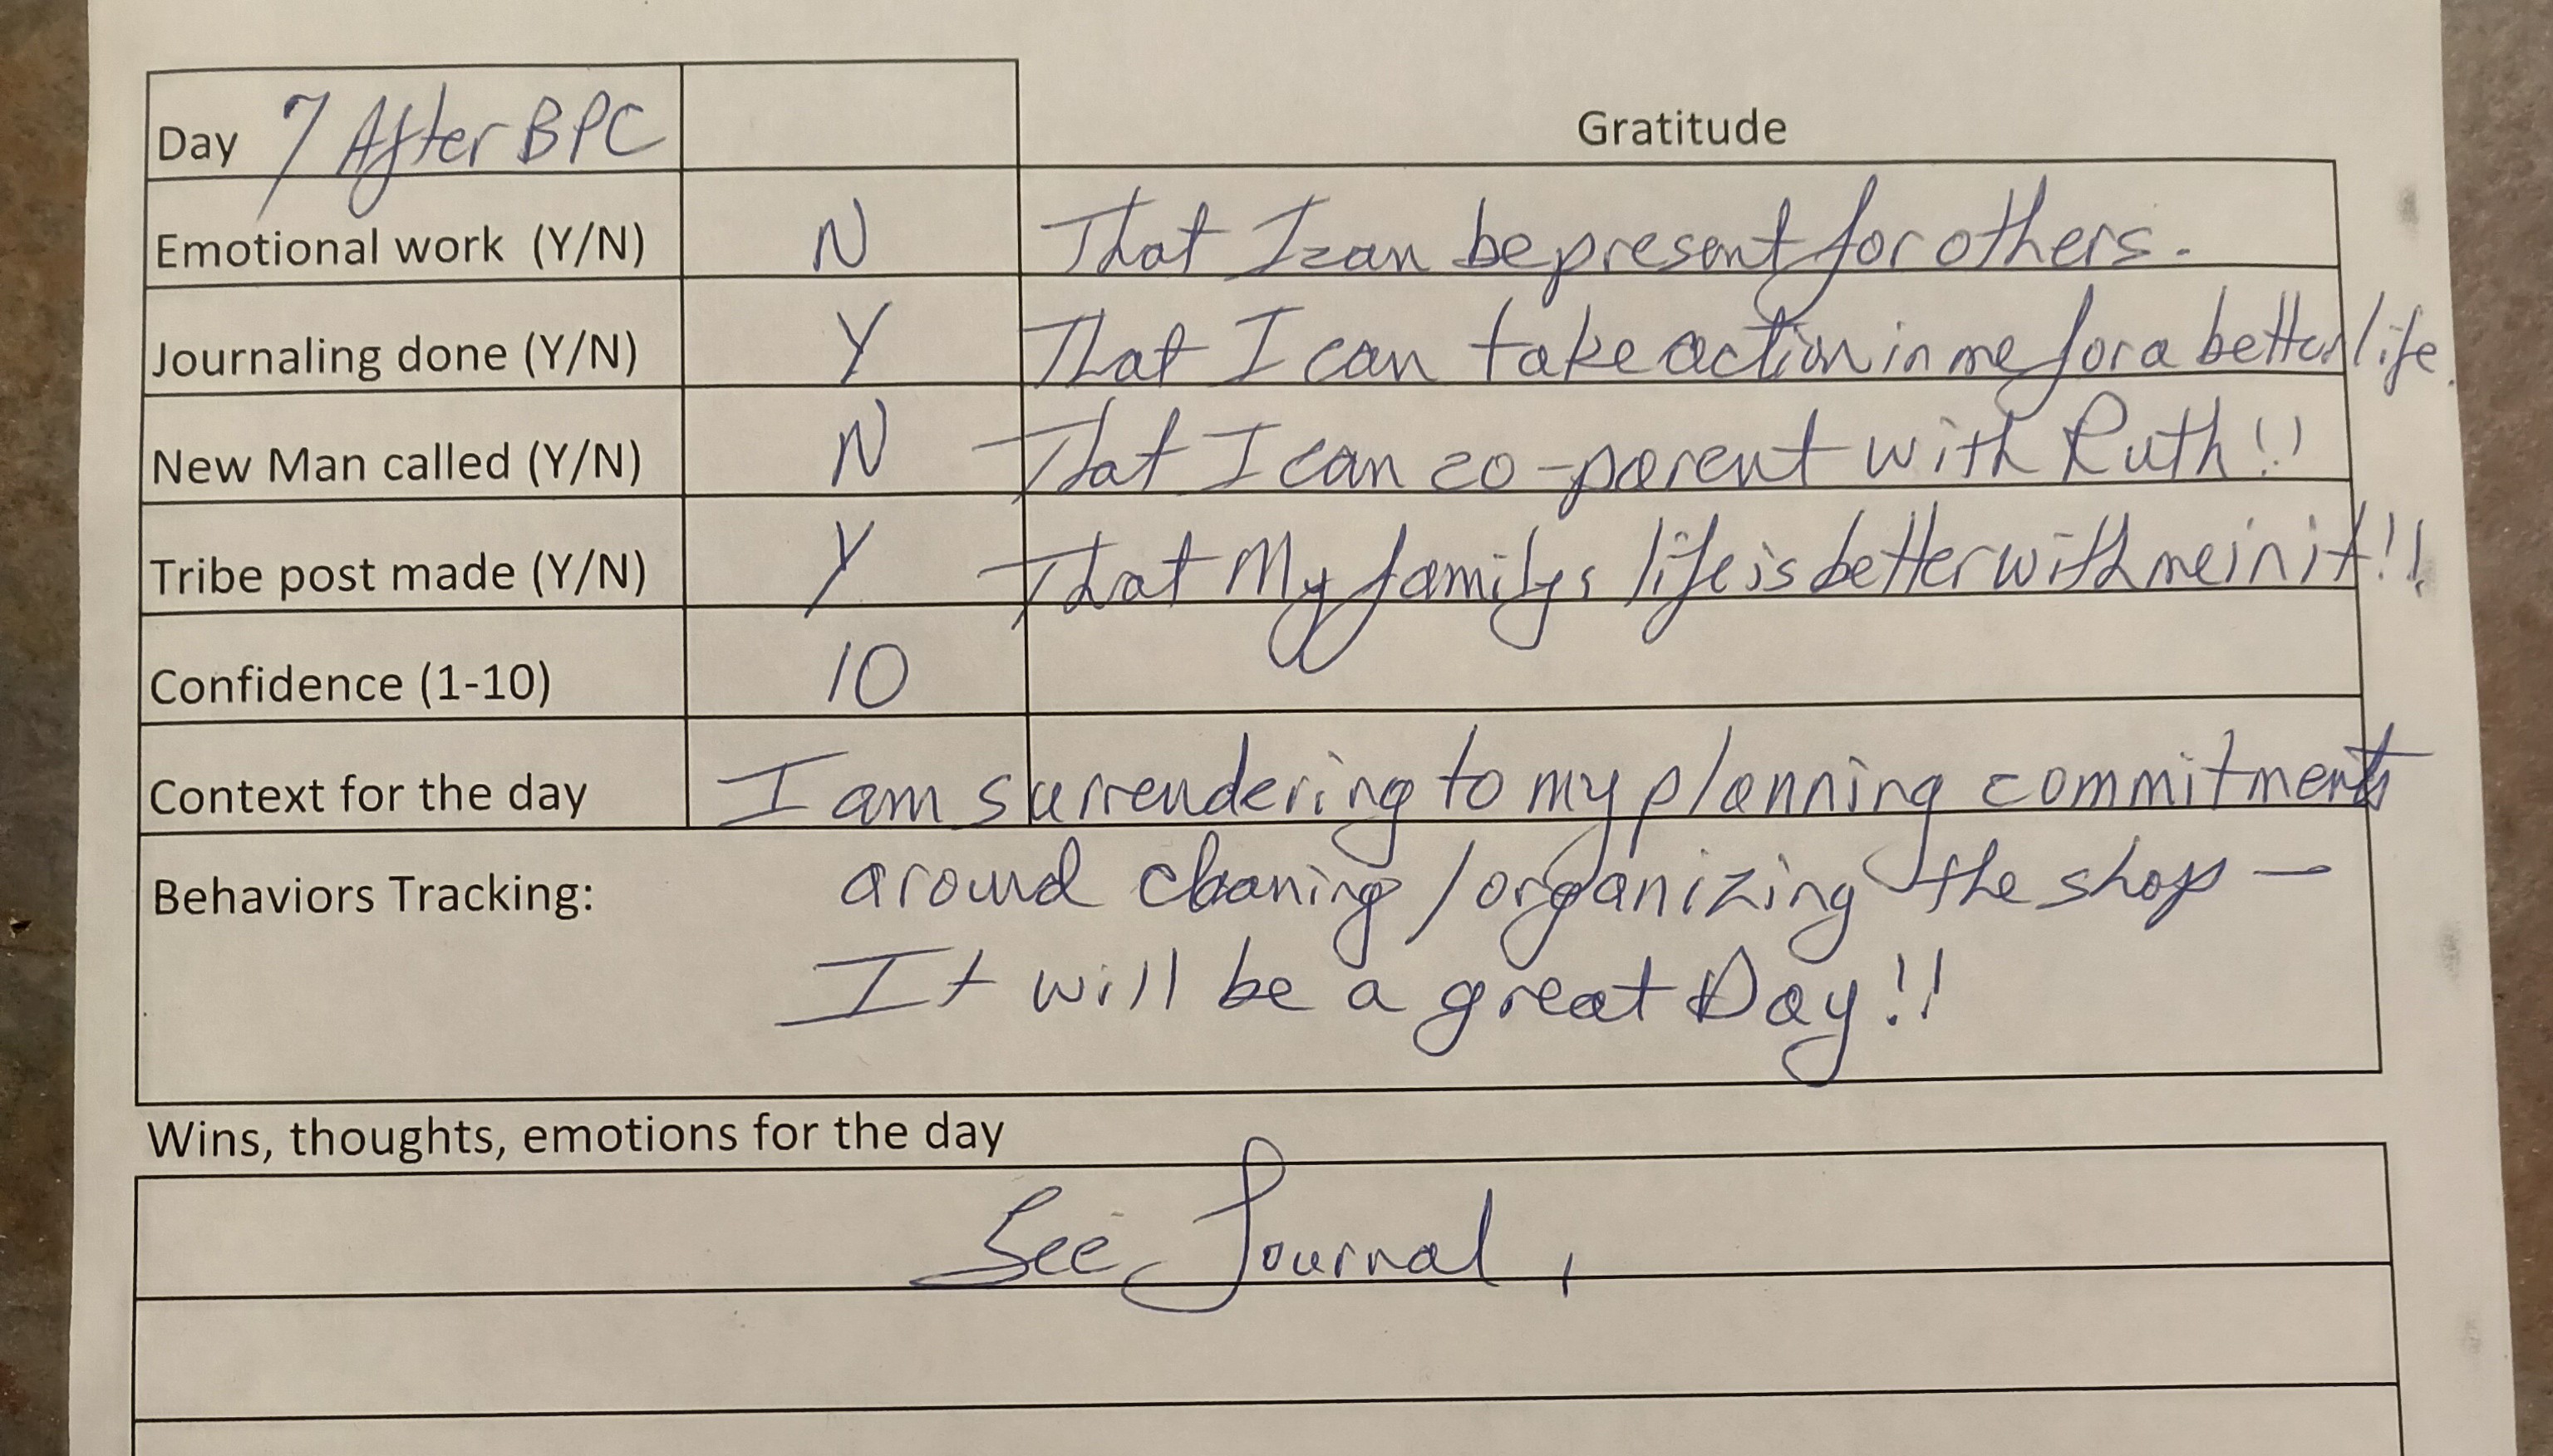 Day 7 After BPC
Gratitude
Emotional work (Y/N) N That I can be present for others.
Journaling done (Y/N) Y That I can take action in me for a better life.
New Man called (Y/N) N That I can co-parent with Ruth!!
Tribe post made (Y/N) Y That My familys life is better with me in it!!
Confidence (1-10) 10
Context for the day I am surrendering to my planning commitments
Behaviors Tracking: around cleaning / organizing the shop —
It will be a great Day!!
Wins, thoughts, emotions for the day
See Journal.